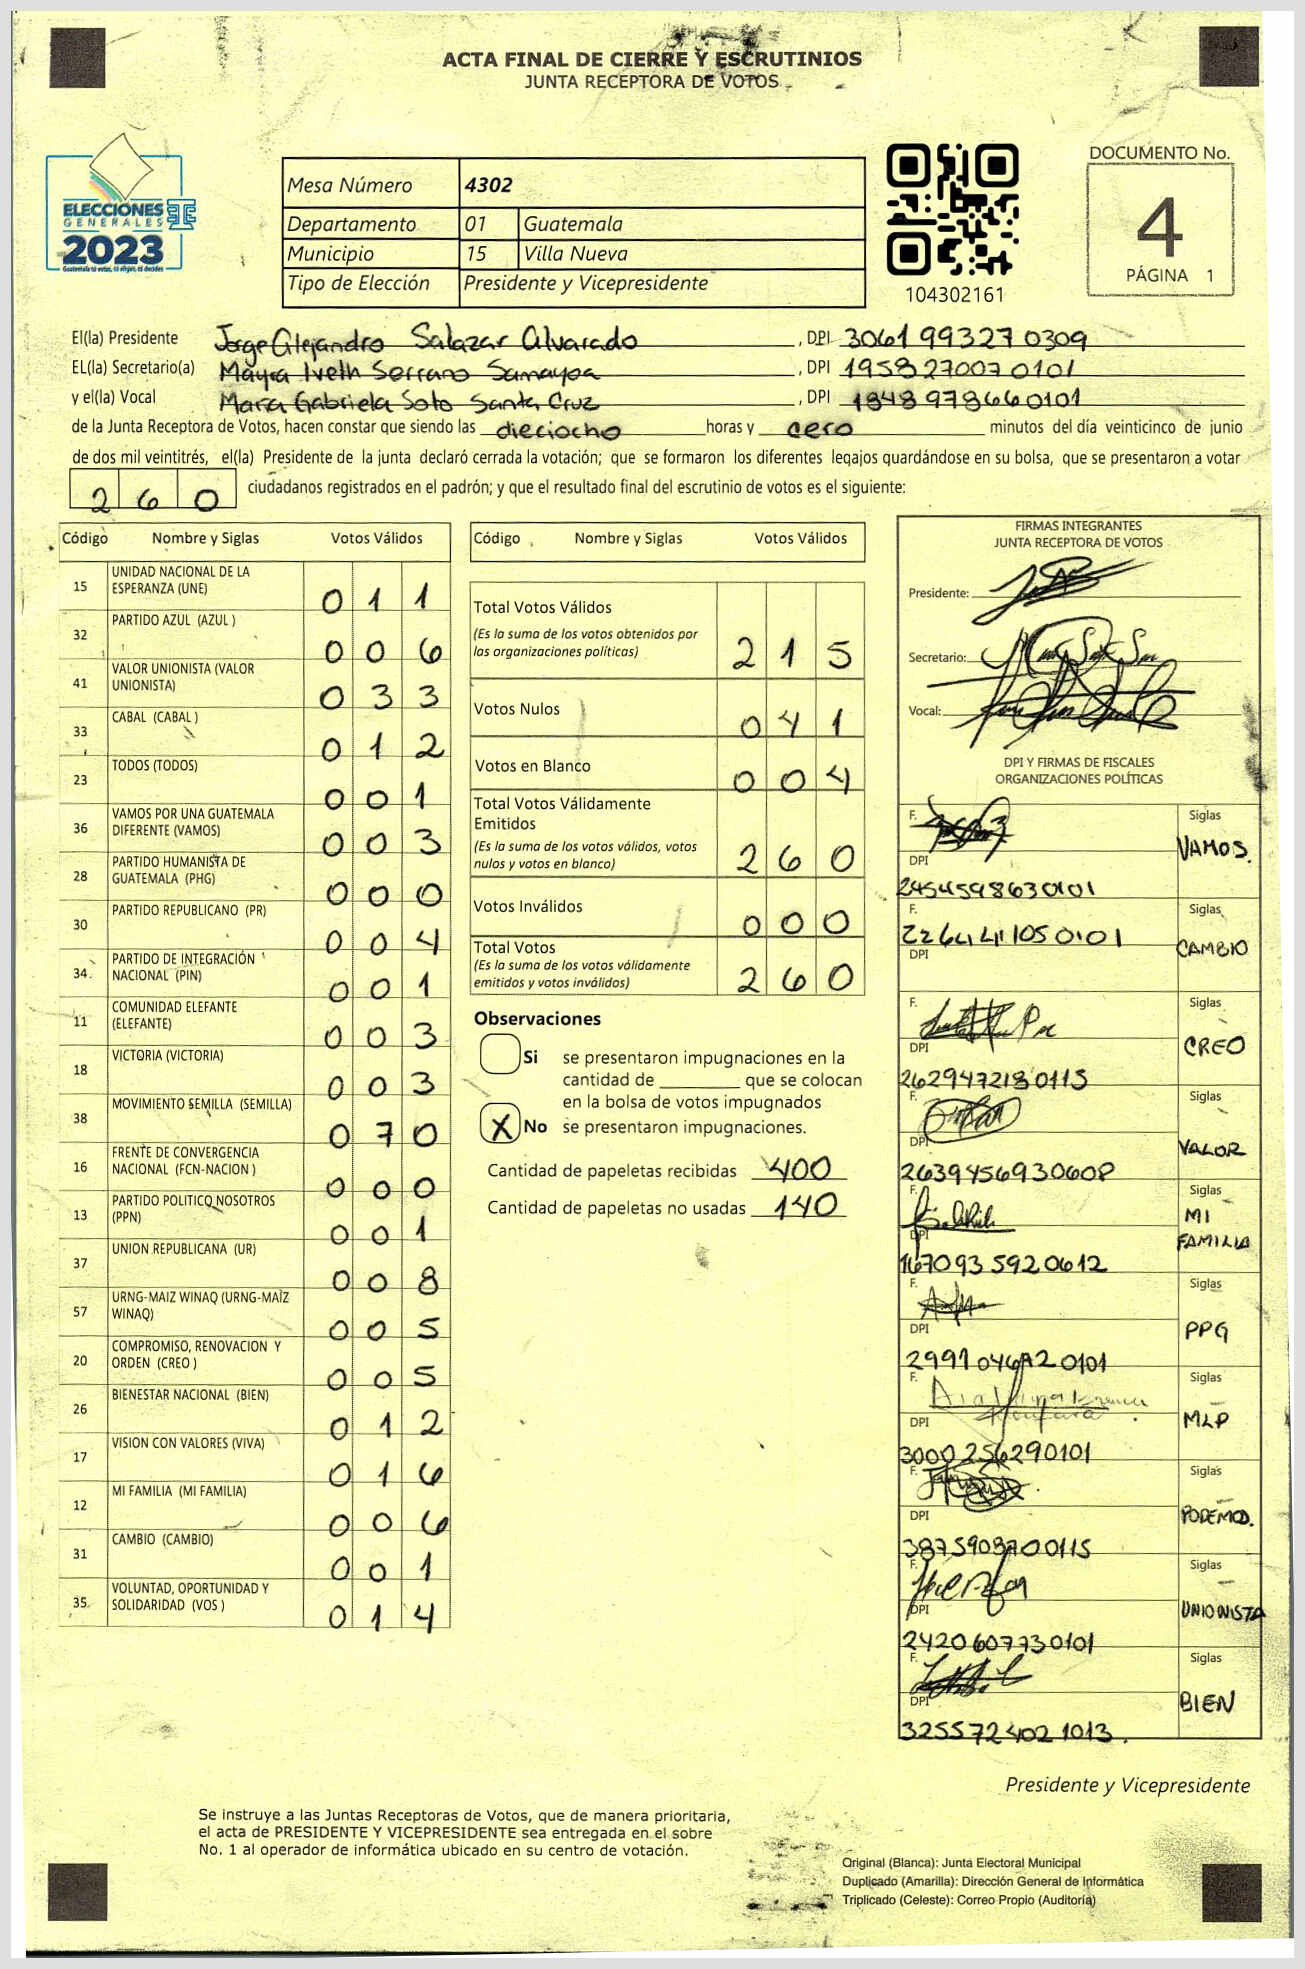 ACTA FINAL DE CIERRE Y ESCRUTINIOS
JUNTA RECEPTORA DE VOTOS
ELECCIONES
GENERALES
2023
Guatemala tú votas, tú eliges, tú decides
Mesa Número 4302
Departamento 01 Guatemala
Municipio 15 Villa Nueva
Tipo de Elección Presidente y Vicepresidente
104302161
DOCUMENTO No.
4
PÁGINA 1
El(la) Presidente Jorge Alejandro Salazar Alvarado , DPI 3061 99327 0309
EL(la) Secretario(a) Mayra Iveth Serrano Samayoa , DPI 1958 27007 0101
y el(la) Vocal Maria Gabriela Soto Santa Cruz , DPI 1848 97866 0101
de la Junta Receptora de Votos, hacen constar que siendo las dieciocho horas y cero minutos del día veinticinco de junio
de dos mil veintitrés, el(la) Presidente de la junta declaró cerrada la votación; que se formaron los diferentes legajos quardándose en su bolsa, que se presentaron a votar
260 ciudadanos registrados en el padrón; y que el resultado final del escrutinio de votos es el siguiente:
Código Nombre y Siglas Votos Válidos
15 UNIDAD NACIONAL DE LA ESPERANZA (UNE) 011
32 PARTIDO AZUL (AZUL ) 006
41 VALOR UNIONISTA (VALOR UNIONISTA) 033
33 CABAL (CABAL ) 012
23 TODOS (TODOS) 001
36 VAMOS POR UNA GUATEMALA DIFERENTE (VAMOS) 003
28 PARTIDO HUMANISTA DE GUATEMALA (PHG) 000
30 PARTIDO REPUBLICANO (PR) 004
34 PARTIDO DE INTEGRACIÓN NACIONAL (PIN) 001
11 COMUNIDAD ELEFANTE (ELEFANTE) 003
18 VICTORIA (VICTORIA) 003
38 MOVIMIENTO SEMILLA (SEMILLA) 070
16 FRENTE DE CONVERGENCIA NACIONAL (FCN-NACION ) 000
13 PARTIDO POLITICO NOSOTROS (PPN) 001
37 UNION REPUBLICANA (UR) 008
57 URNG-MAIZ WINAQ (URNG-MAÍZ WINAQ) 005
20 COMPROMISO, RENOVACION Y ORDEN (CREO ) 005
26 BIENESTAR NACIONAL (BIEN) 012
17 VISION CON VALORES (VIVA) 016
12 MI FAMILIA (MI FAMILIA) 006
31 CAMBIO (CAMBIO) 001
35 VOLUNTAD, OPORTUNIDAD Y SOLIDARIDAD (VOS ) 014
Código Nombre y Siglas Votos Válidos
Total Votos Válidos
(Es la suma de los votos obtenidos por las organizaciones políticas) 215
Votos Nulos 041
Votos en Blanco 004
Total Votos Válidamente Emitidos
(Es la suma de los votos válidos, votos nulos y votos en blanco) 260
Votos Inválidos 000
Total Votos
(Es la suma de los votos válidamente emitidos y votos inválidos) 260
Observaciones
Si se presentaron impugnaciones en la
cantidad de ________ que se colocan
en la bolsa de votos impugnados
X No se presentaron impugnaciones.
Cantidad de papeletas recibidas 400
Cantidad de papeletas no usadas 140
FIRMAS INTEGRANTES
JUNTA RECEPTORA DE VOTOS
Presidente:
Secretario:
Vocal:
DPI Y FIRMAS DE FISCALES
ORGANIZACIONES POLÍTICAS
F. Siglas
VAMOS.
DPI
2454598630101
F. Siglas
CAMBIO
DPI
F. Siglas
CREO
DPI
2629472180115
F. Siglas
VALOR
DPI
F. Siglas
MI
FAMILIA
DPI
1670935920612
F. Siglas
PPG
DPI
F. Siglas
MLP
DPI
3000256290101
F. Siglas
PODEMOS.
DPI
F. Siglas
UNIONISTA
DPI
2420607730101
F. Siglas
BIEN
DPI
3255724021013.
Presidente y Vicepresidente
Se instruye a las Juntas Receptoras de Votos, que de manera prioritaria,
el acta de PRESIDENTE Y VICEPRESIDENTE sea entregada en el sobre
No. 1 al operador de informática ubicado en su centro de votación.
Original (Blanca): Junta Electoral Municipal
Duplicado (Amarilla): Dirección General de Informática
Triplicado (Celeste): Correo Propio (Auditoría)